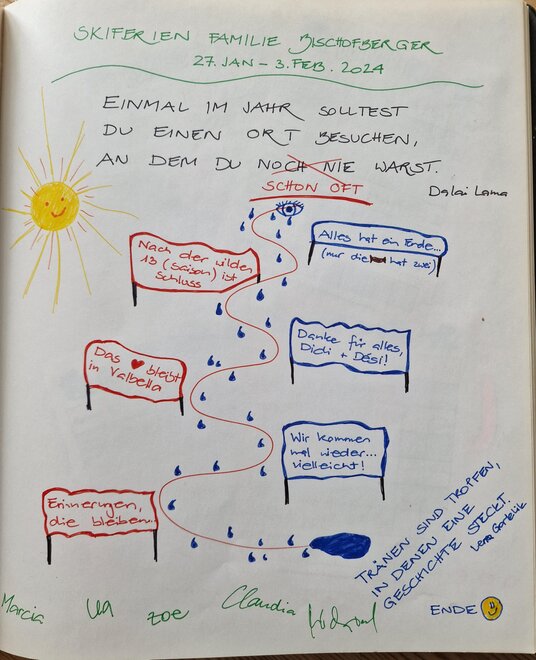 SKIFERIEN FAMILIE BISCHOFBERGER
27. JAN – 3. FEB. 2024
EINMAL IM JAHR SOLLTEST
DU EINEN ORT BESUCHEN,
AN DEM DU NOCH NIE WARST.
SCHON OFT
Dalai Lama
Alles hat ein Ende...
(nur die hat zwei)
Nach der wilden
13 (Saison) ist
Schluss
Danke für alles,
Didi + Dési!
Das ♥ bleibt
in Valbella
Wir kommen
mal wieder...
vielleicht!
Erinnerungen,
die bleiben...
TRÄNEN SIND TROPFEN,
IN DENEN EINE
GESCHICHTE STECKT.
Marcia
Zoe
Claudia
ENDE